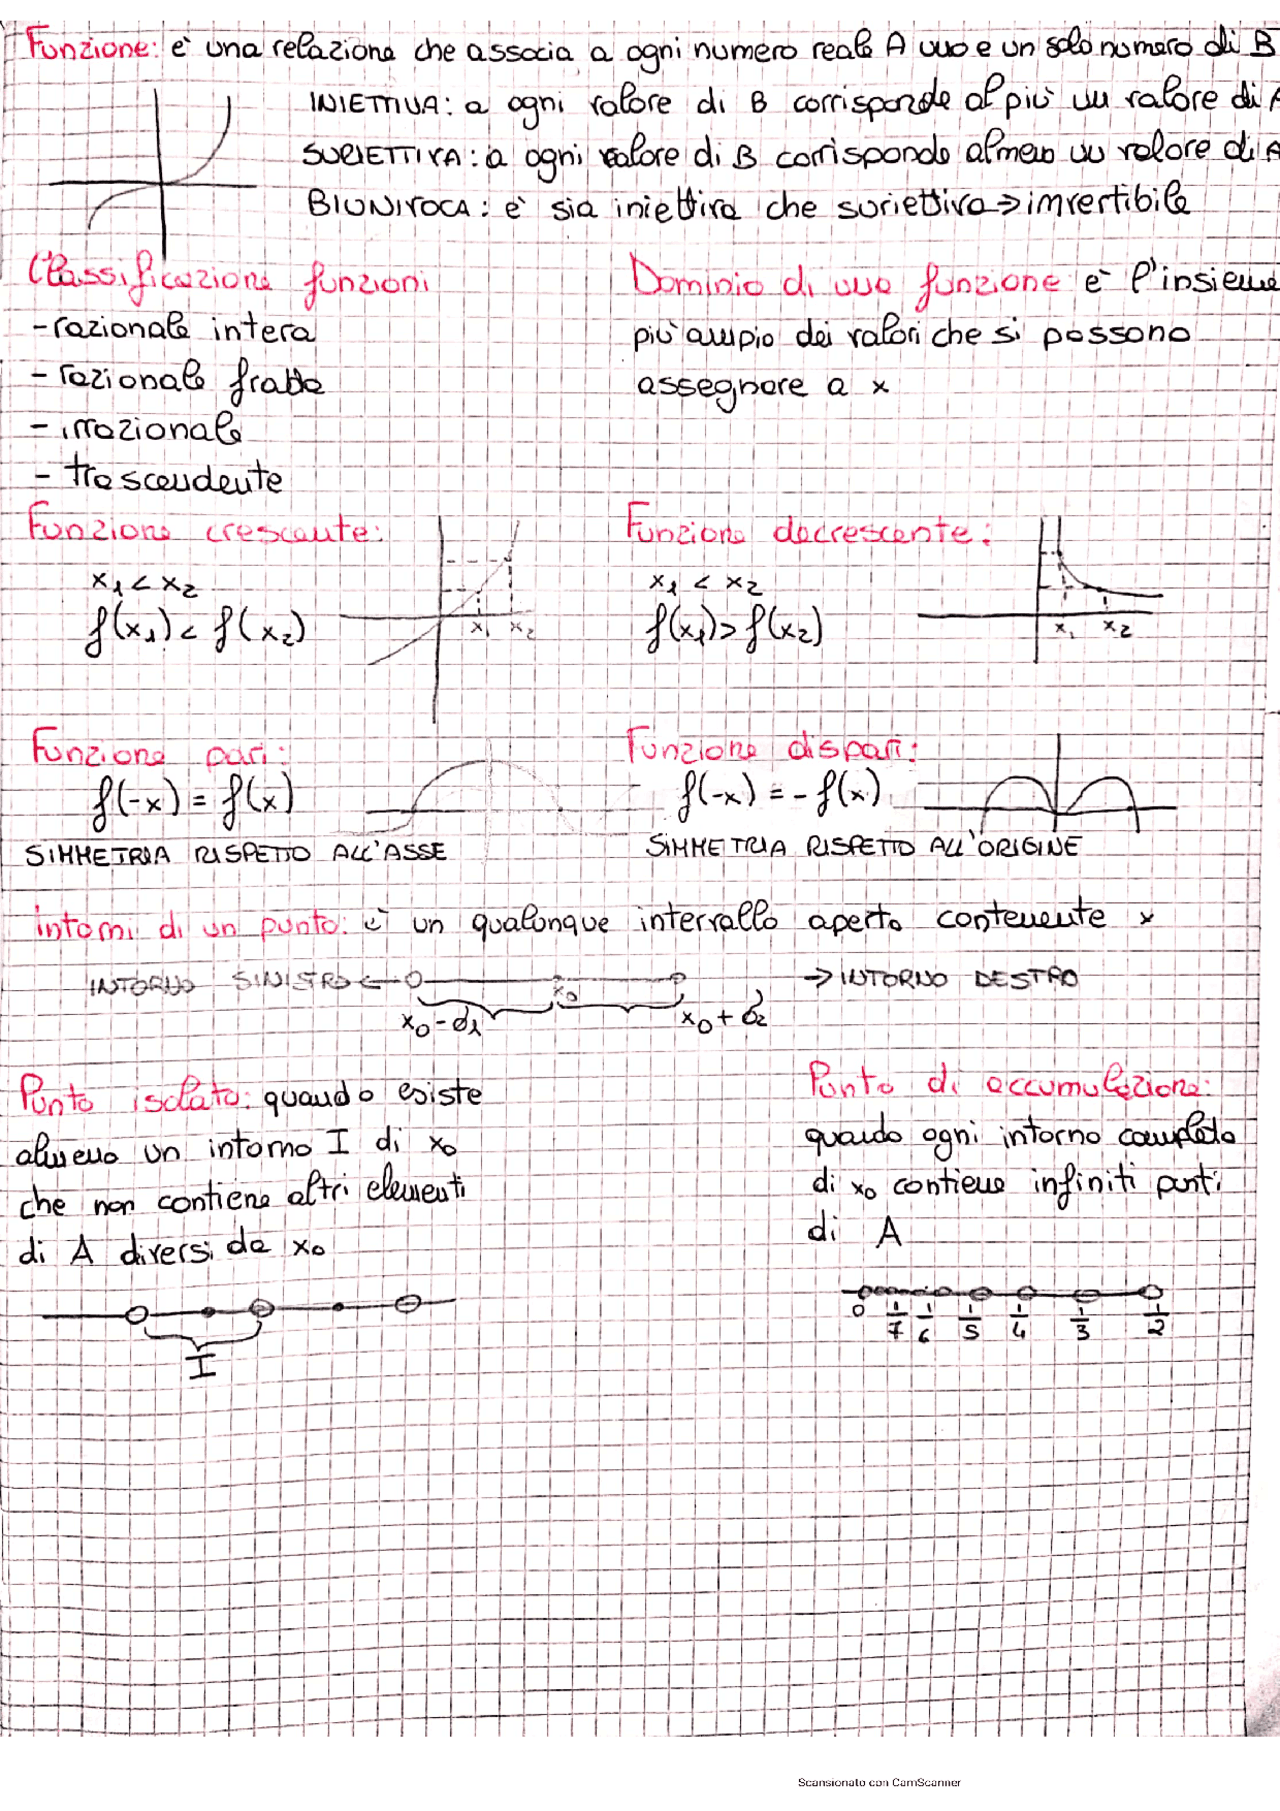 Funzione: è una relazione che associa a ogni numero reale A uno e un solo numero di B
INIETTIVA: a ogni valore di B corrisponde al più un valore di A
SURIETTIVA: a ogni valore di B corrisponde almeno un valore di A
BIUNIVOCA: è sia iniettiva che suriettiva → invertibile
Classificazione funzioni
- razionale intera
- razionale fratta
- irrazionale
- trascendente
Dominio di una funzione è l'insieme
più ampio dei valori che si possono
assegnare a x
Funzione crescente:
x₁ < x₂
f(x₁) < f(x₂)
x₁ x₂
Funzione decrescente:
x₁ < x₂
f(x₁) > f(x₂)
x₁ x₂
Funzione pari:
f(-x) = f(x)
SIMMETRIA RISPETTO ALL'ASSE
Funzione dispari:
f(-x) = - f(x)
SIMMETRIA RISPETTO ALL'ORIGINE
intorni di un punto: è un qualunque intervallo aperto contenente x
INTORNO SINISTRO ← x₀ → INTORNO DESTRO
x₀ - δ₁ x₀ + δ₂
Punto isolato: quando esiste
almeno un intorno I di x₀
che non contiene altri elementi
di A diversi da x₀
I
Punto di accumulazione:
quando ogni intorno completo
di x₀ contiene infiniti punti
di A
0 1/7 1/6 1/5 1/4 1/3 1/2
Scansionato con CamScanner